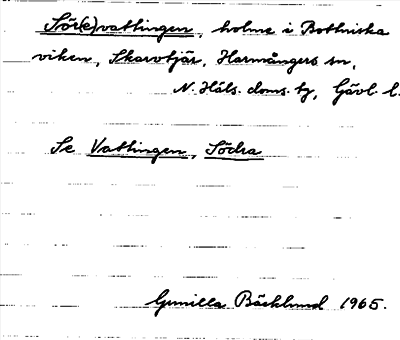 Sör(e)vattingen, holme i Bottniska
viken, Skarvtjär, Harmångers sn,
N. Häls. doms. tg, Gävl. l.
Se Vattingen, Södra
Gunilla Bäcklund 1965.